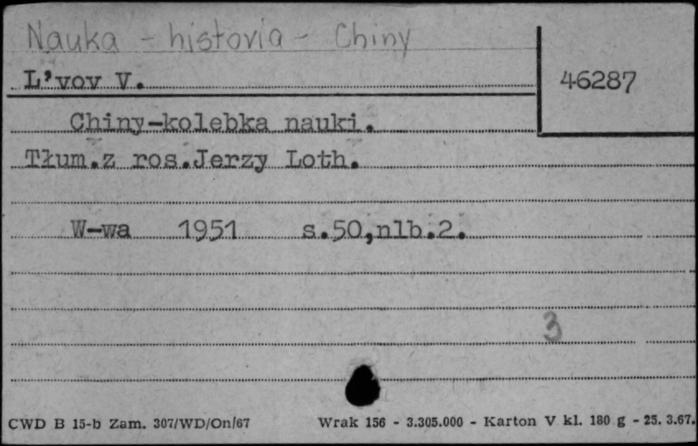 Nauka - historia - Chiny
L'vov V.
46287
Chiny-kolebka nauki.
Tłum.z ros.Jerzy Loth.
W-wa 1951 s.50,nlb.2.
3
CWD B 15-b Zam. 307/WD/On/67 Wrak 156 - 3.305.000 - Karton V kl. 180 g - 25. 3.67.